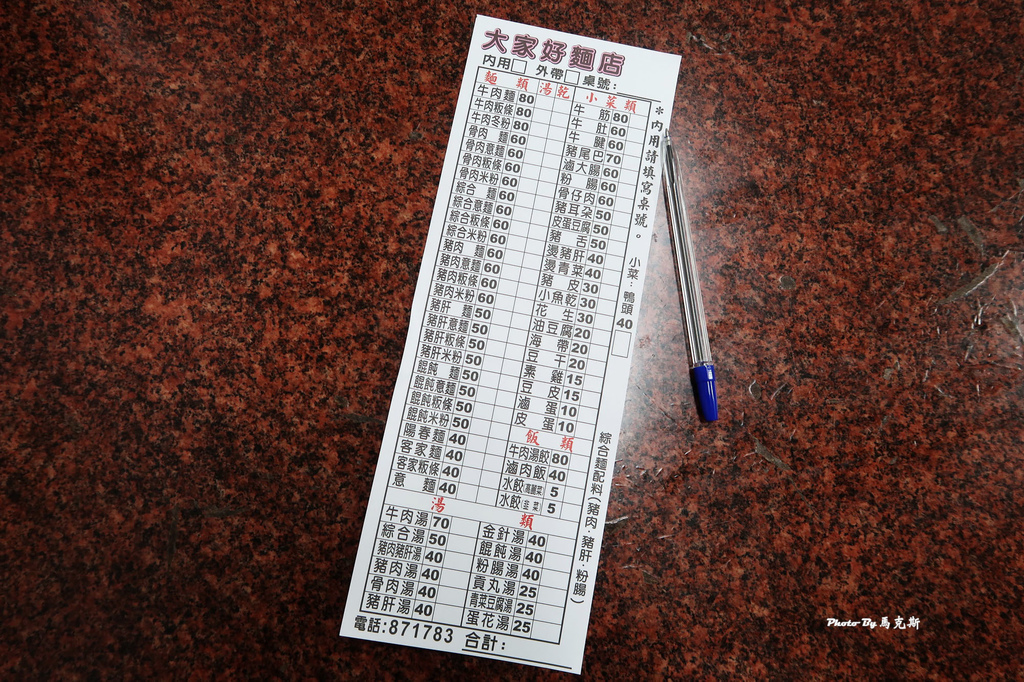 大家好麵店
內用□ 外帶□ 桌號:
麵 類 湯 乾
牛肉麵 80
牛肉粄條 80
牛肉冬粉 80
骨肉 麵 60
骨肉意麵 60
骨肉粄條 60
骨肉米粉 60
綜合 麵 60
綜合意麵 60
綜合粄條 60
綜合米粉 60
豬肉 麵 60
豬肉意麵 60
豬肉粄條 60
豬肉米粉 60
豬肝 麵 50
豬肝意麵 50
豬肝粄條 50
豬肝米粉 50
餛飩 麵 50
餛飩意麵 50
餛飩粄條 50
餛飩米粉 50
陽春麵 40
客家麵 40
客家粄條 40
意 麵 40
小菜類
牛 筋 80
牛 肚 60
牛 腱 60
豬尾巴 70
滷大腸 60
粉 腸 60
骨仔肉 60
豬耳朵 50
皮蛋豆腐 50
豬 舌 50
燙豬肝 40
燙青菜 40
豬 皮 30
小魚乾 30
花 生 30
油豆腐 20
海 帶 20
豆 干 20
素 雞 15
豆 皮 15
滷 蛋 10
皮 蛋 10
飯 類
牛肉湯餃 80
滷肉飯 40
水餃(高麗菜) 5
水餃(韭菜) 5
湯 類
牛肉湯 70
綜合湯 50
豬肉豬肝湯 40
豬肉湯 40
骨肉湯 40
豬肝湯 40
金針湯 40
餛飩湯 40
粉腸湯 40
貢丸湯 25
青菜豆腐湯 25
蛋花湯 25
電話:871783 合計:
*內用請填寫桌號。 小菜:鴨頭40□
綜合麵配料(豬肉·豬肝·粉腸)
Photo By 馬克斯